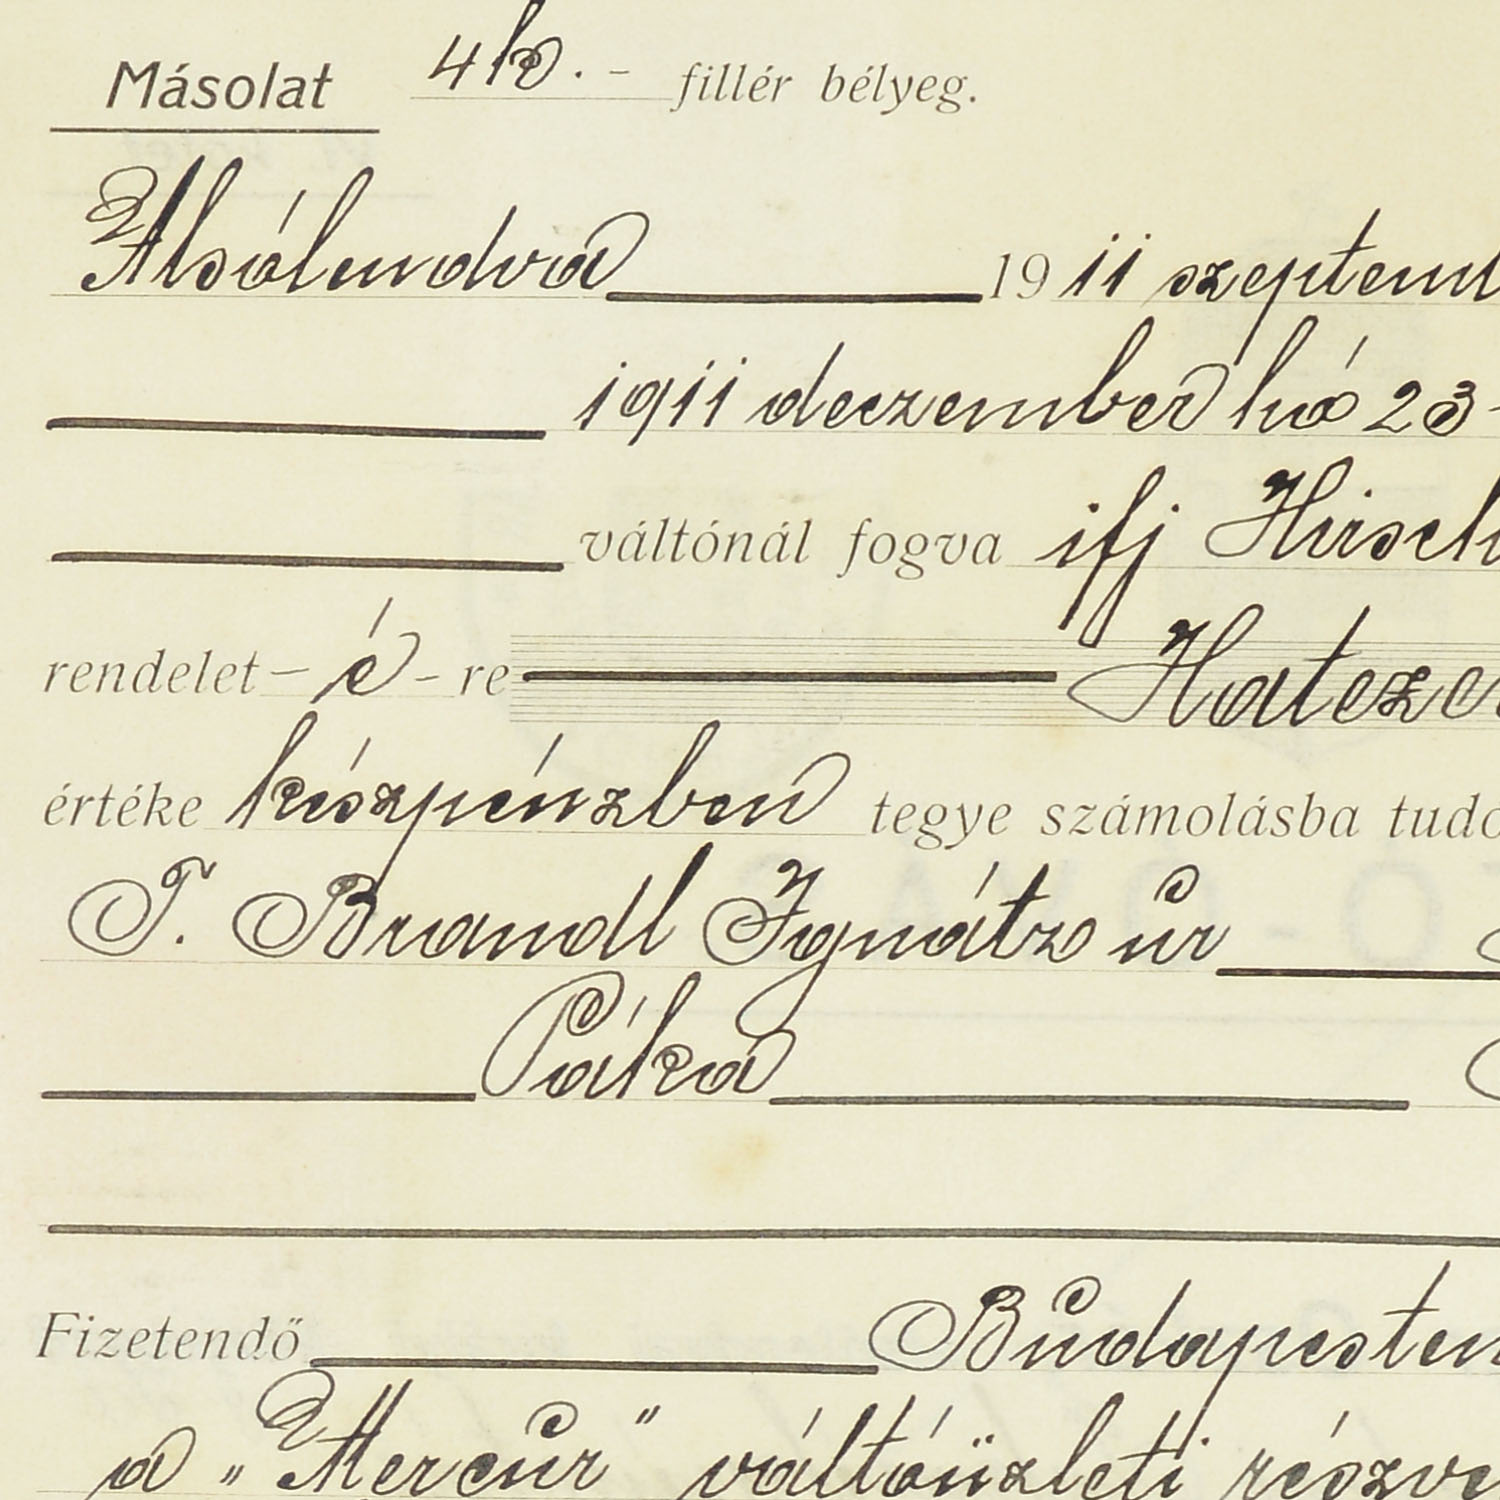 Másolat 4 K. - fillér bélyeg.
Alsólendva 1911 szeptemb
1911 deczember hó 23-
váltónál fogva ifj Hirsch
rendelet - é - re Hatezer
értéke készpénzben tegye számolásba tudó
T. Brandl Ignátz úr
Páka
Fizetendő Budapesten
a „Mercur" váltóüzleti részve